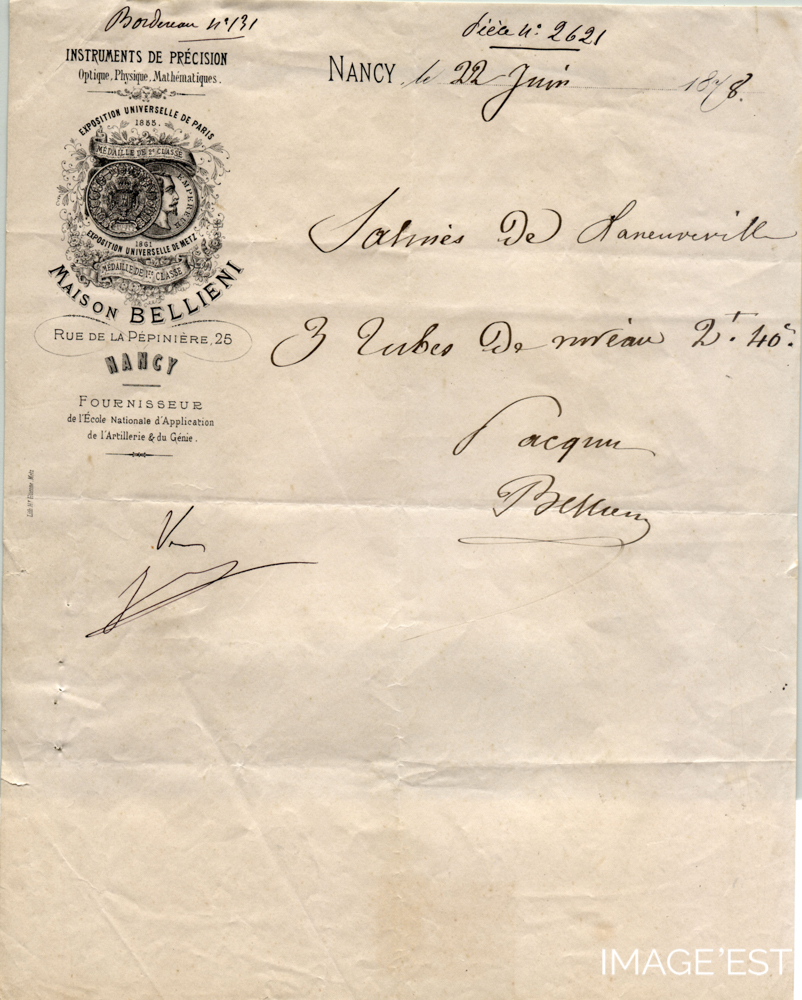 Bordereau n° 131
Pièce n° 2621
INSTRUMENTS DE PRÉCISION
Optique, Physique, Mathématiques.
NANCY, le 22 Juin 1878.
EXPOSITION UNIVERSELLE DE PARIS
1855.
MÉDAILLE DE 1re CLASSE
EMPEREUR
1861
EXPOSITION UNIVERSELLE DE METZ
MÉDAILLE DE 1re CLASSE
MAISON BELLIENI
RUE DE LA PÉPINIÈRE, 25
NANCY
FOURNISSEUR
de l'École Nationale d'Application
de l'Artillerie & du Génie.
Salines de Laneuveville
3 tubes de niveau 2f. 40c.
Pacquin
Bellieni
Vu
IMAGE'EST